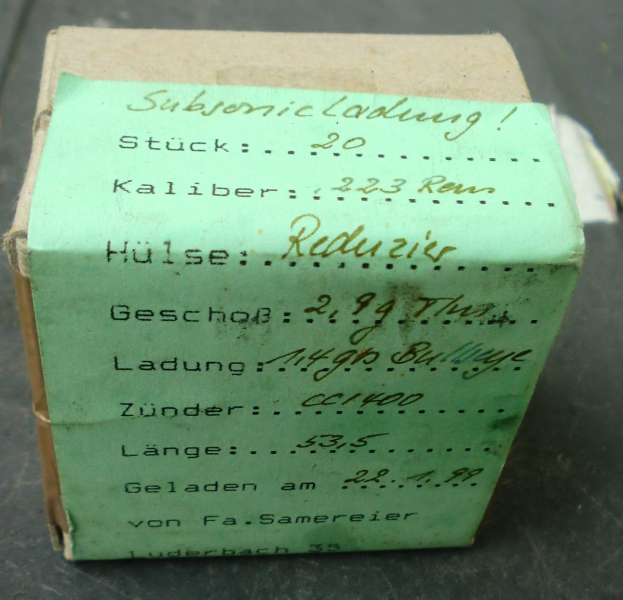 Subsonicladung!
Stück: 20
Kaliber: .223 Rem
Hülse: Reduzier
Geschoß: 2,9g
Ladung: 1,4grs Bullseye
Zünder: CCI 400
Länge: 53,5
Geladen am 22.1.99
von Fa.Samereier
Luderbach 35